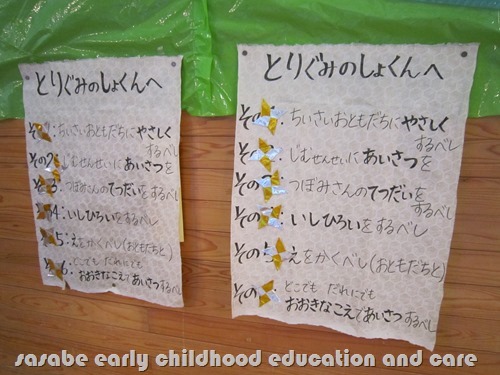 とりぐみのしょくんへ
その1:ちいさいおともだちにやさしく
するべし
その2:じむせんせいにあいさつを
するべし
その3:つぼみさんのてつだいを
するべし
その4:いしひろいをするべし
その5:えをかくべし(おともだちと)
その6:どこでも だれにでも
おおきなこえであいさつするべし
とりぐみのしょくんへ
その:ちいさいおともだちにやさしく
するべし
その:じむせんせいにあいさつを
するべし
その:つぼみさんのてつだいを
するべし
その:いしひろいをするべし
その:えをかくべし(おともだちと)
その どこでも だれにでも
おおきなこえであいさつするべし
sasabe early childhood education and care